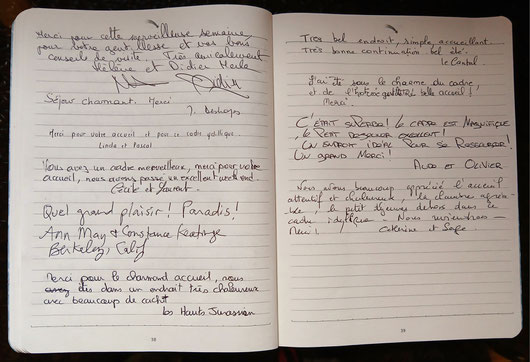 Merci pour cette merveilleuse semaine,
pour votre gentillesse et vos bons
conseils de visite. Très cordialement
Hélène et Didier Merle
Séjour charmant. Merci
J. Deshayes
Merci pour votre accueil et pour ce cadre idyllique.
Linda et Pascal
Vous avez un cadre merveilleux, merci pour votre
accueil, nous avons passé un excellent week end.
Cécile et Laurent
Quel grand plaisir! Paradis!
Ann May & Constance
Berkeley, Calif
Merci pour le charmant accueil, nous
dans un endroit très chaleureux
avec beaucoup de cachet
les Hauts Jurassien
38
Très bel endroit, simple, accueillant.
Très bonne continuation bel été.
le Cantal
J'ai été sous le charme du cadre
et de l'hôtesse belle accueil!
Merci.
C'était superbe! Le cadre est magnifique,
le petit déjeuner excellent!
Un endroit idéal pour se ressourcer!
Un grand merci!
et Olivier
Nous avons beaucoup apprécié l'accueil
attentif et chaleureux, la chambre
le petit déjeuner dehors dans ce
cadre idyllique. Nous reviendrons
Merci!
Catherine et
39